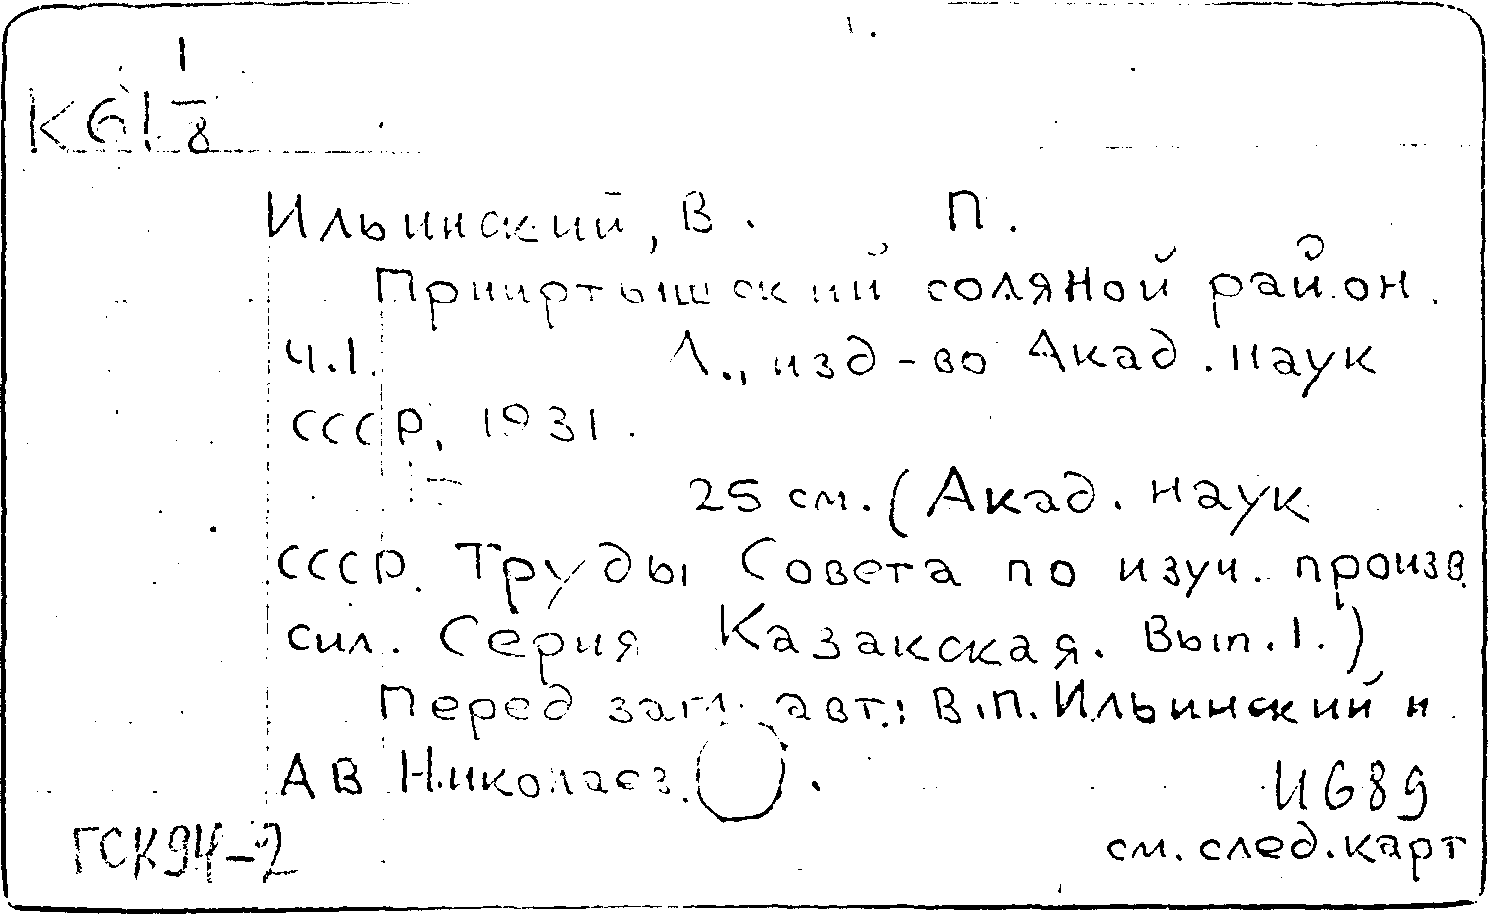 К61 1/8
Ильинский, В. П.
Прииртышский соляной район.
Ч.1. Л., изд-во Акад. наук
СССР, 1931.
25 см. (Акад. наук
СССР. Труды Совета по изуч. произв.
сил. Серия Казакская. Вып. 1.)
Перед загл. авт.: В.П. Ильинский и
А В Николаев.
И689
ГСК94-2
см. след. карт